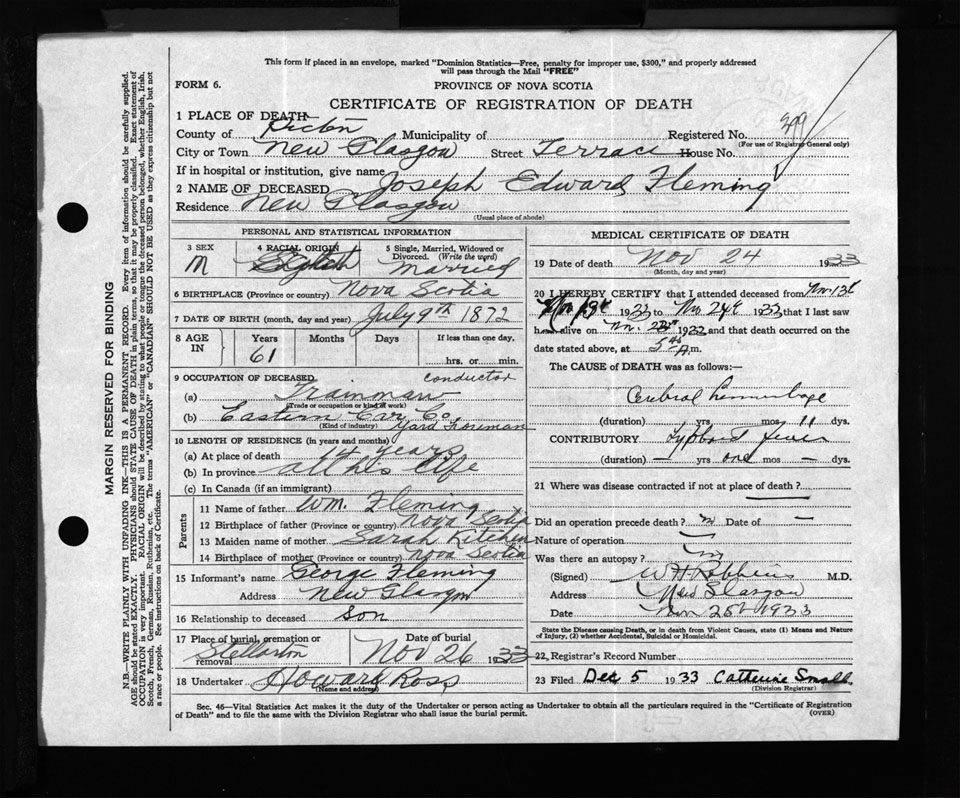 This form if placed in an envelope, marked "Dominion Statistics—Free, penalty for improper use, $300," and properly addressed
will pass through the Mail "FREE"
FORM 6.
PROVINCE OF NOVA SCOTIA
CERTIFICATE OF REGISTRATION OF DEATH
1 PLACE OF DEATH
County of Pictou Municipality of Registered No. 399
(For use of Registrar General only)
City or Town New Glasgow Street Terrace House No.
If in hospital or institution, give name
2 NAME OF DECEASED Joseph Edward Fleming
Residence New Glasgow
(Usual place of abode)
PERSONAL AND STATISTICAL INFORMATION
3 SEX
M
4 RACIAL ORIGIN
5 Single, Married, Widowed or
Divorced. (Write the word)
Married
6 BIRTHPLACE (Province or country) Nova Scotia
7 DATE OF BIRTH (month, day and year) July 9th 1872
8 AGE
IN
Years
61
Months
Days
If less than one day,
hrs. or min.
9 OCCUPATION OF DECEASED conductor
(a) Trainman
(Trade or occupation or kind of work)
(b) Eastern Car Co.
(Kind of industry) Yard Foreman
10 LENGTH OF RESIDENCE (in years and months)
(a) At place of death 14 years
(b) In province all his life
(c) In Canada (if an immigrant)
Parents
11 Name of father Wm. Fleming
12 Birthplace of father (Province or country) Nova Scotia
13 Maiden name of mother Sarah Kitchen
14 Birthplace of mother (Province or country) Nova Scotia
15 Informant's name George Fleming
Address New Glasgow
16 Relationship to deceased Son
17 Place of burial, cremation or
removal Stellarton
Date of burial
Nov 26 1933
18 Undertaker Howard Ross
(Name and address)
MEDICAL CERTIFICATE OF DEATH
19 Date of death Nov 24 1933
(Month, day and year)
20 I HEREBY CERTIFY that I attended deceased from Nov 13th
Nov 13th 1933 to Nov 24th 1933 that I last saw
h alive on Nov. 1933 and that death occurred on
date stated above, at 5 A.m.
The CAUSE of DEATH was as follows:—
Cerebral hemorrhage
(duration) yrs mos 11 days
CONTRIBUTORY Typhoid fever
(duration) — yrs one mos — dys.
21 Where was disease contracted if not at place of death?
Did an operation precede death? Date of —
Nature of operation
Was there an autopsy?
(Signed) W H Robbins M.D.
Address New Glasgow
Date Nov 25th 1933
State the Disease causing Death, or in death from Violent Causes, state (1) Means and Nature
of Injury, (2) whether Accidental, Suicidal or Homicidal.
22 Registrar's Record Number
23 Filed Dec 5 1933 Catherine Small
(Division Registrar)
Sec. 46—Vital Statistics Act makes it the duty of the Undertaker or person acting as Undertaker to obtain all the particulars required in the "Certificate of Registration
of Death" and to file the same with the Division Registrar who shall issue the burial permit.
(OVER)
MARGIN RESERVED FOR BINDING
N.B.—WRITE PLAINLY WITH UNFADING INK—THIS IS A PERMANENT RECORD. Every item of information should be carefully supplied.
AGE should be stated EXACTLY. PHYSICIANS should STATE CAUSE OF DEATH in plain terms, so that it may be properly classified. Exact statement of
OCCUPATION is very important. RACIAL ORIGIN will be described by stating to what people or tongue the deceased person belonged, whether English, Irish,
Scotch, French, German, Russian, Ruthenian, etc. The terms "AMERICAN" or "CANADIAN" SHOULD NOT BE USED as they express citizenship but not
a race or people. See instructions on back of Certificate.